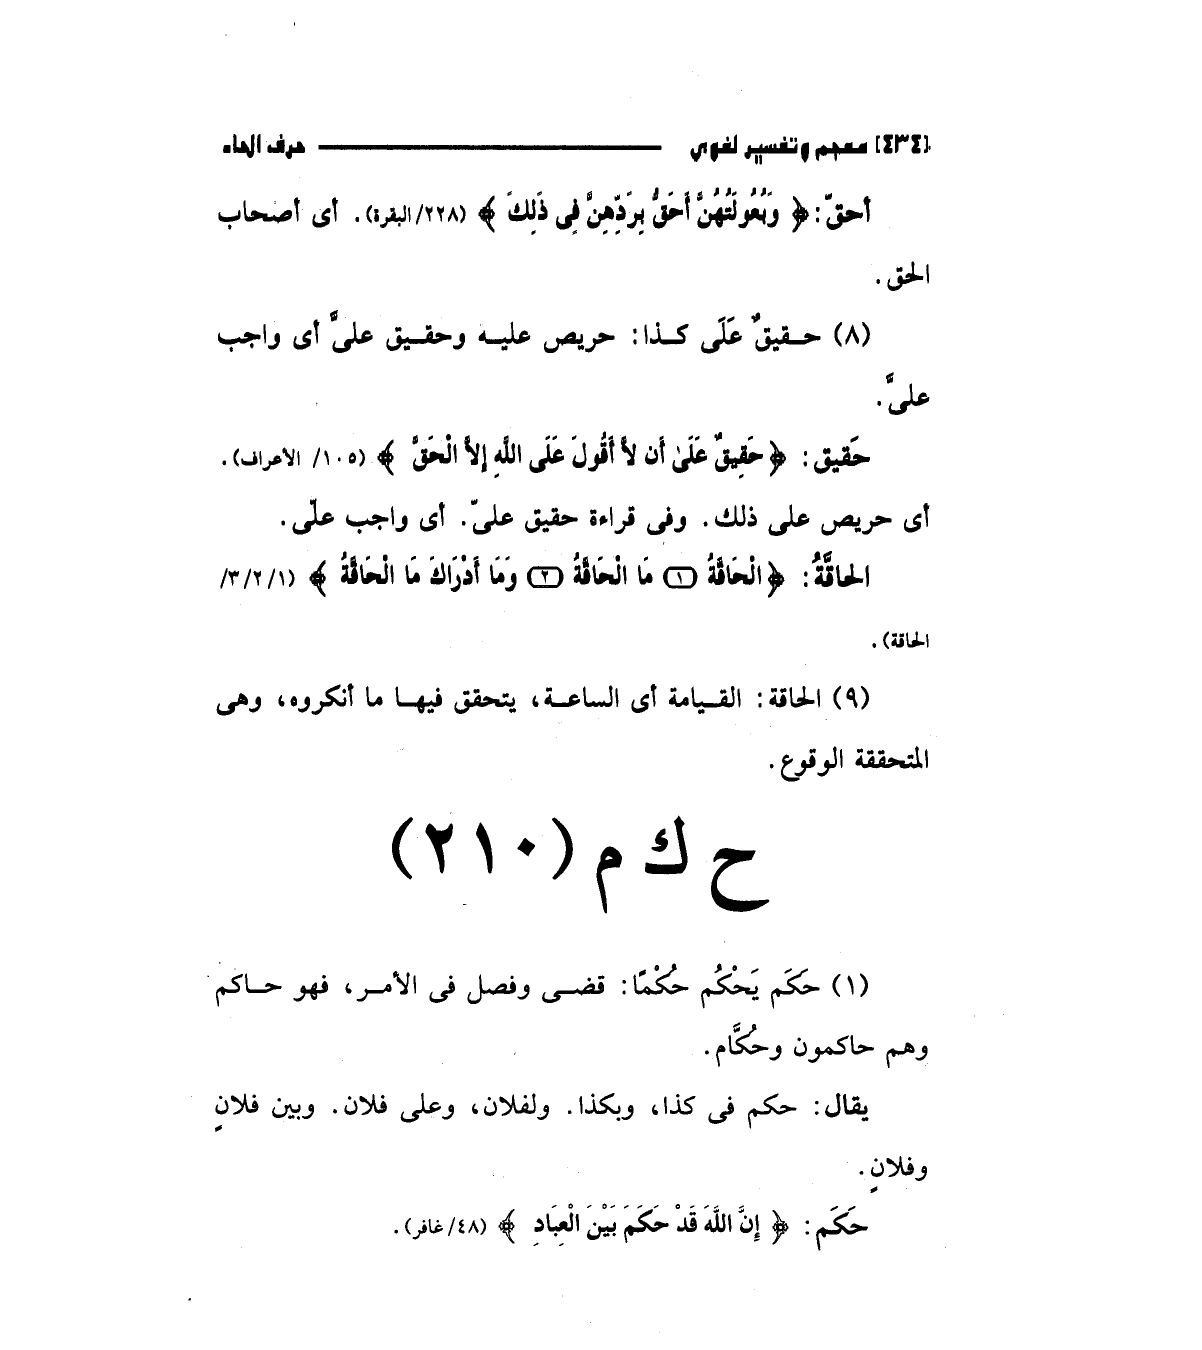 [٤٣٤] معجم وتفسير لغوي حرف الحاء
أحقّ: ﴿ وَبُعُولَتُهُنَّ أَحَقُّ بِرَدِّهِنَّ فِى ذَلِكَ ﴾ (٢٢٨/البقرة). أى أصحاب
الحق.
(٨) حـقيقٌ عَلَى كـذا: حريص عليـه وحقـيق علىَّ أى واجب
علىَّ.
حَقيق: ﴿ حَقِيقٌ عَلَىٰ أَن لاَّ أَقُولَ عَلَى اللَّهِ إِلاَّ الْحَقَّ ﴾ (١٠٥/ الأعراف).
أى حريص على ذلك. وفى قراءة حقيق علىّ. أى واجب علّى.
الحاقَّةُ: ﴿ الْحَاقَّةُ (١) مَا الْحَاقَّةُ (٢) وَمَا أَدْرَاكَ مَا الْحَاقَّةُ ﴾ (٣/٢/١/
الحاقة).
(٩) الحاقة: القـيامة أى الساعـة، يتحقق فيهـا ما أنكروه، وهى
المتحققة الوقوع.
ح ك م (٢١٠)
(١) حَكَم يَحْكُم حُكْمًا: قضـى وفصل فى الأمـر، فهو حـاكم
وهم حاكمون وحُكَّام.
يقال: حكم فى كذا، وبكذا. ولفلان، وعلى فلان. وبين فلانٍ
وفلانٍ.
حَكَم: ﴿ إِنَّ اللَّهَ قَدْ حَكَمَ بَيْنَ الْعِبَادِ ﴾ (٤٨/غافر).